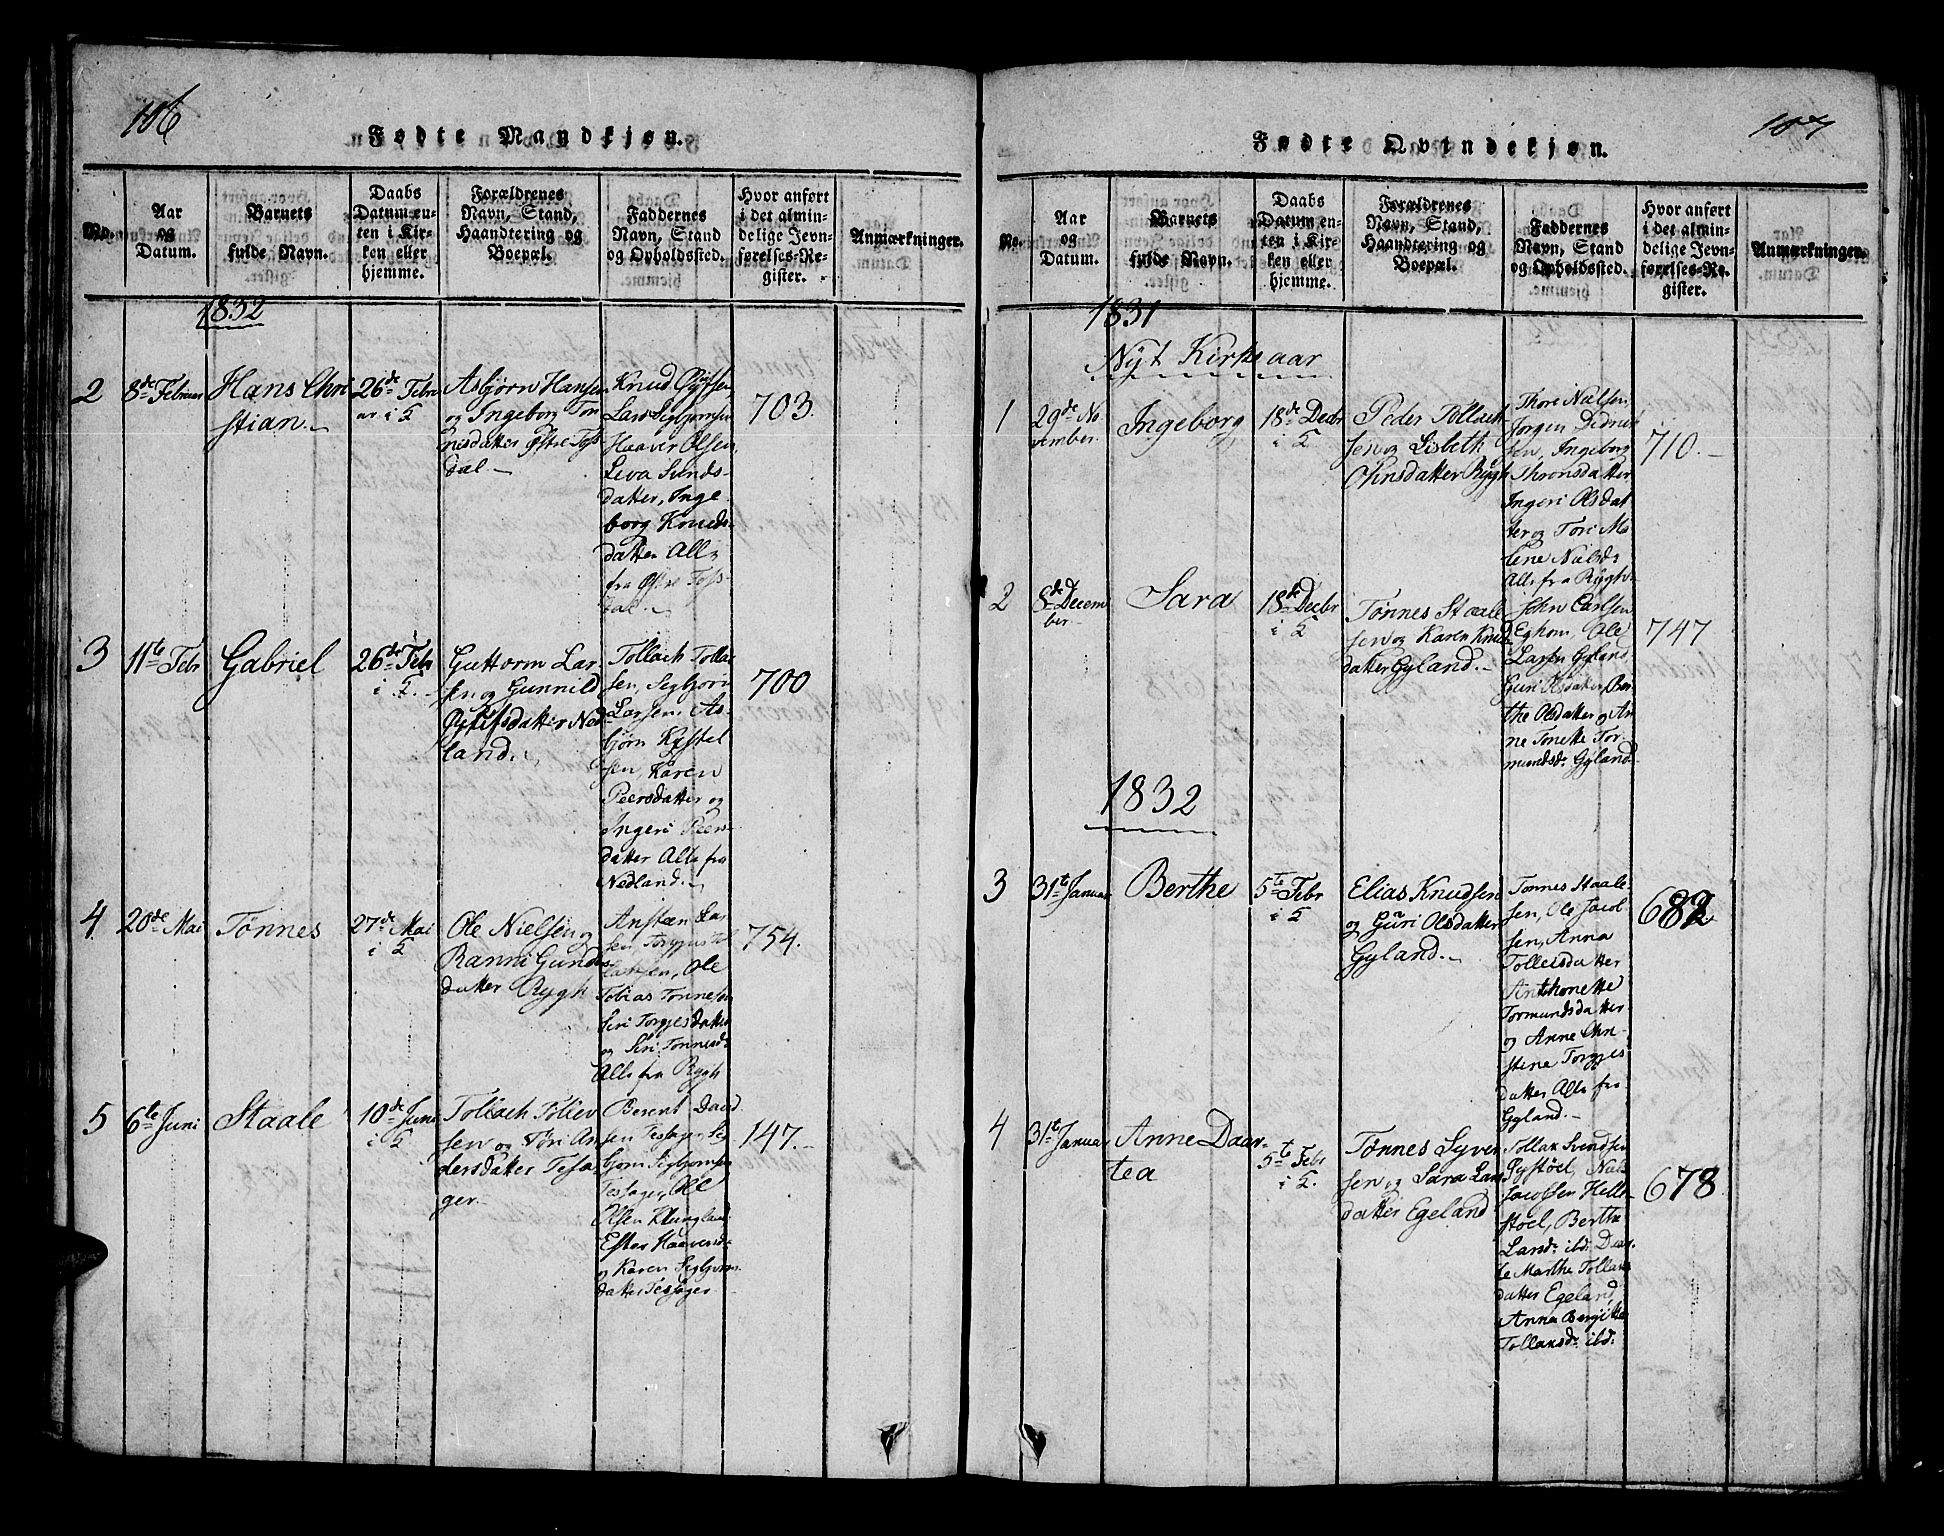 106
Fødte Mandkjøn.
No.
Aar
og
Datum.
Barnets
fulde Navn.
Daabs
Datum en-
ten i Kir-
ken eller
hjemme.
Forældrenes
Navn, Stand,
Haandtering og
Boepæl.
Faddernes
Navn, Stand
og Opholdssted.
Hvor anført
i det almin-
delige Jevn-
førelses-Re-
gister.
Anmærkninger.
1832
2
8de Februar
Hans Chri
stian.
26de Febru
ar i K
Asbjørn Hansen
og Ingeborg Tøn
nesdatter Østre Tøss
dal
Knud
Lars Sigbjørnsen
Haaver Olsen,
Leva Svends-
datter, Inge
borg Knuds-
datter Alle
fra Østre Tøss-
dal
703.
3
11te Febr
Gabriel
26de Febr
i K.
Guttorm Lar
sen og Gunnild
datter Ned
land.
Tollach Tollac
sen, Sigbjørn
Larsen, As-
bjørn
sen, Karen
Peersdatter og
Ingeri Peers
datter Alle fra
Nedland.
700
4
20de Mai
Tønnes
27de Mai
i K
Ole Nielsen og
Ranni Gunders
datter Rygh
Lar
sen
Ole
Tobias Tønnesen
Siri Torgjesdatter
og Siri Tønnesd.
Alle fra Rygh
754.
5
6te Juni
Staale
10de Juni
i K
Tollach Tolley
sen og Tøri An
dersdatter Tesa
ger.
Berent David
sen Tessager, Sig
bjørn Sigbjørnsen
Tessager, Ole
Olsen Klungland
Ester Haaversd.
og Karen Sigbjørns
datter Tessager
147.
107
Fødte Qvindekjøn.
No.
Aar
og
Datum.
Barnets
fulde Navn.
Daabs
Datum en-
ten i Kir-
ken eller
hjemme.
Forældrenes
Navn, Stand,
Haandtering og
Boepæl.
Faddernes
Navn, Stand
og Opholdssted.
Hvor anført
i det almin-
delige Jevn-
førelses-Re-
gister.
Anmærkninger.
1831
Nyt Kirkeaar
1
29de No
vember
Ingeborg
18de Decbr
i K.
Peder Tollach
sen og Lisbeth
datter Rygh
Thore Nielsen,
Jørgen
sen, Ingeborg
Thronsdatter
Ingeri Olsdat
ter og Tøri Ma
lene Nielsd.
Alle fra Rygh
710.
2
8de Decem
ber
Sara
18de Decbr
i K
Tønnes Staale
sen og Karen Knuds
datter Gyland.
John Carlsen
Eghom, Ole
Larsen Gyland
Guri Olsdatter, Ber
the Olsdatter og An
ne Tonette Tor-
mundsd. Gyland
747
1832
3
31te Januar
Berthe
5te Febr
i K
Elias Knudsen
og Guri Olsdatter
Gyland.
Tønnes Staale-
sen, Ole Jacob
sen, Anna
Tolleisdatter
Anthonette
Tormundsdatter
og Anne Chri-
stine Torgjes
datter Alle fra
Gyland.
682
4
31te Januar
Anne Daar-
tea
5te Febr
i K.
Tønnes Syver
sen og Sara Lars
datter Egeland
Tollak Svendsen
Øystøel, Niels
Jacobsen Helle-
støel, Berthe
Larsd. ibd. Daar-
te Marthe Tollaks
datter Egeland
Anna Bergitte
Tollaksd. ibd.
678